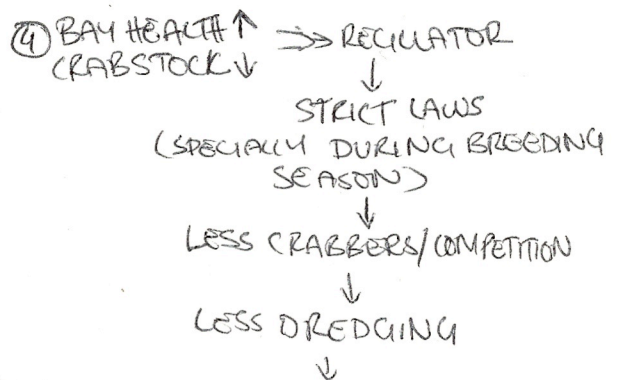 ④ BAY HEALTH ↑ ⇒ REGULATOR
CRABSTOCK ↓
↓
STRICT LAWS
(SPECIALLY DURING BREEDING
SEASON)
↓
LESS CRABBERS/COMPETITION
↓
LESS DREDGING
↓